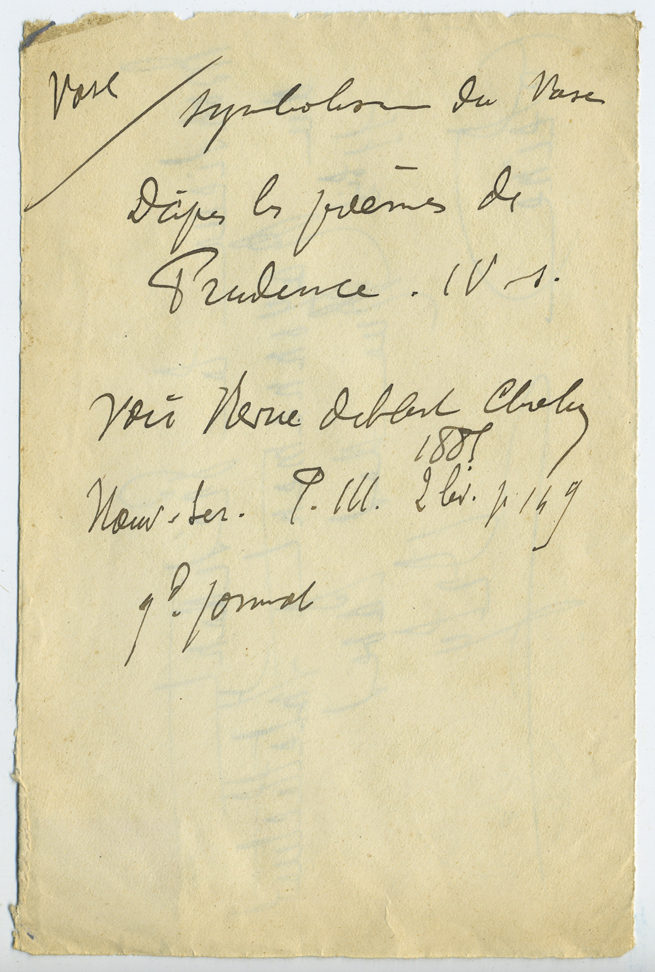 Vase
Symbolisme du Vase
D'après les poèmes de
Prudence. IV s.
Voir Revue de l'Art Chrétien
1885
Nouv. Ser. T. III. 2 liv. p 149
gd. format